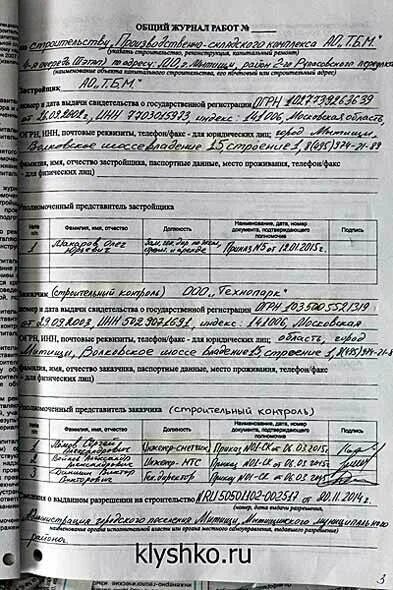 ОБЩИЙ ЖУРНАЛ РАБОТ №
по строительству, Производственно-складского комплекса АО„Т.Б.М."
(указать строительство, реконструкция, капитальный ремонт)
4-я очередь (Этап) по адресу: М.О., г. Мытищи, район 2-го Рупасовского переулка
(наименование объекта капитального строительства, его почтовый или строительный адрес)
Застройщик АО„Т.Б.М."
номер и дата выдачи свидетельства о государственной регистрации ОГРН 1027739263639
от 26.09.2002г, ИНН 7703015973 индекс: 141006, Московская область,
ОГРН, ИНН, почтовые реквизиты, телефон/факс - для юридических лиц; город Мытищи,
Волковское шоссе владение 15 строение 1, 8(495)974-21-89
фамилия, имя, отчество застройщика, паспортные данные, место проживания, телефон/факс
- для физических лиц)
Уполномоченный представитель застройщика
№№ п/п
Фамилия, имя, отчество
Должность
Наименование, дата, номер документа, подтверждающего полномочие
Подпись
1 Макаров Олег Юрьевич Зам. ген. дир. по экспл. и аренде Приказ №5 от 12.01.2015г.
Заказчик (строительный контроль) ООО „Технопарк"
номер и дата выдачи свидетельства о государственной регистрации ОГРН 1035005521319
от 29.09.2003, ИНН 5029071591, индекс: 141006, Московская
ОГРН, ИНН, почтовые реквизиты, телефон/факс - для юридических лиц; область, город
Мытищи, Волковское шоссе владение 15 строение 1, 8(495)974-21-8
фамилия, имя, отчество застройщика, паспортные данные, место проживания, телефон/факс
- для физических лиц)
Уполномоченный представитель заказчика (строительный контроль)
№№ п/п
Фамилия, имя, отчество
Должность
Наименование, дата, номер документа, подтверждающего полномочие
Подпись
1 Сергей Инженер-сметчик Приказ №01-СК от 06.03.2015г.
2 Инженер-ПТО Приказ №01-СК от 06.03.2015г.
3 Виктор Викторович Тех. директор Приказ №01-СК от 06.03.2015г.
Сведения о выданном разрешении на строительство №RU50501102-002517 от 20.11.2014г.
(номер, дата выдачи разрешения,
Администрация городского поселения Мытищи, Мытищинского муниципального
наименование органа исполнительной власти или органа местного самоуправления, выдавшего разрешение)
района.
klyshko.ru
3